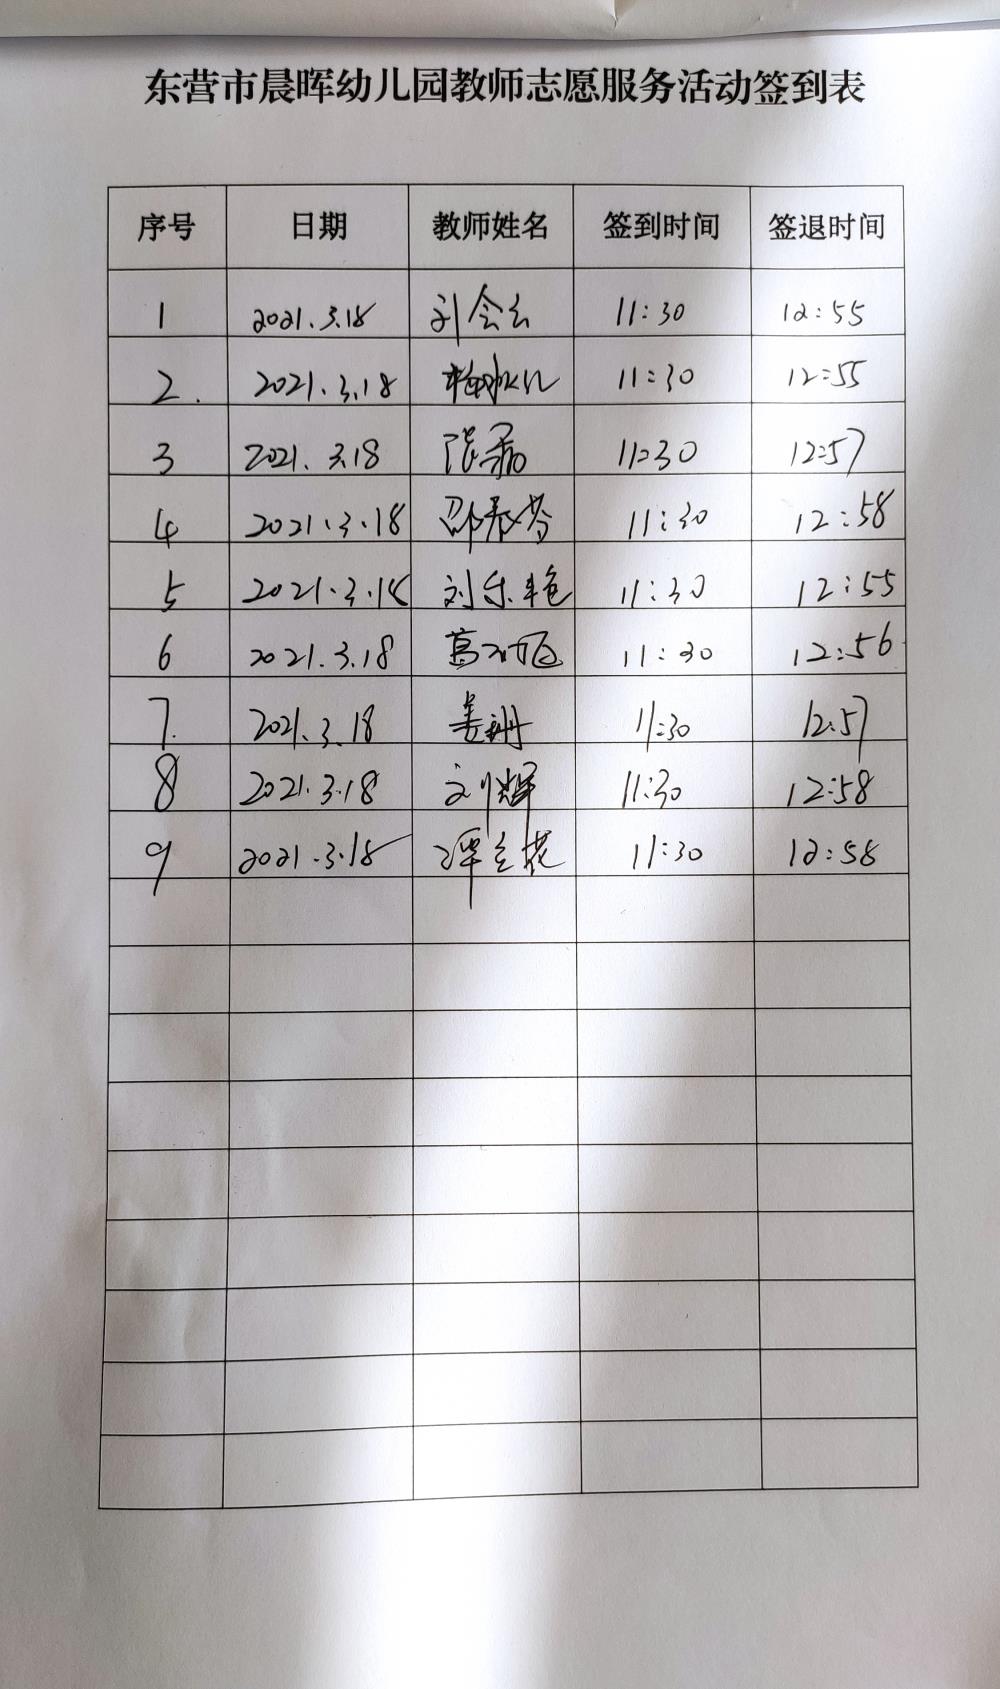 东营市晨晖幼儿园教师志愿服务活动签到表
序号 日期 教师姓名 签到时间 签退时间
1 2021.3.18 刘会云 11:30 12:55
2. 2021.3.18 11:30 12:55
3 2021.3.18 张霞 11:30 12:57
4 2021.3.18 邵春芬 11:30 12:58
5 2021.3.18 刘乐艳 11:30 12:55
6 2021.3.18 11:30 12:56
7. 2021.3.18 姜珊 11:30 12:57
8 2021.3.18 刘辉 11:30 12:58
9 2021.3.18 谭兰花 11:30 12:58